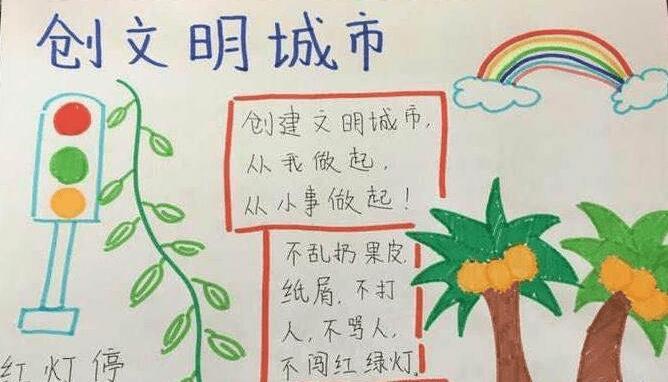 创文明城市
创建文明城市,
从我做起,
从小事做起!
不乱扔果皮
纸屑,不打
人,不骂人,
不闯红绿灯.
红灯停